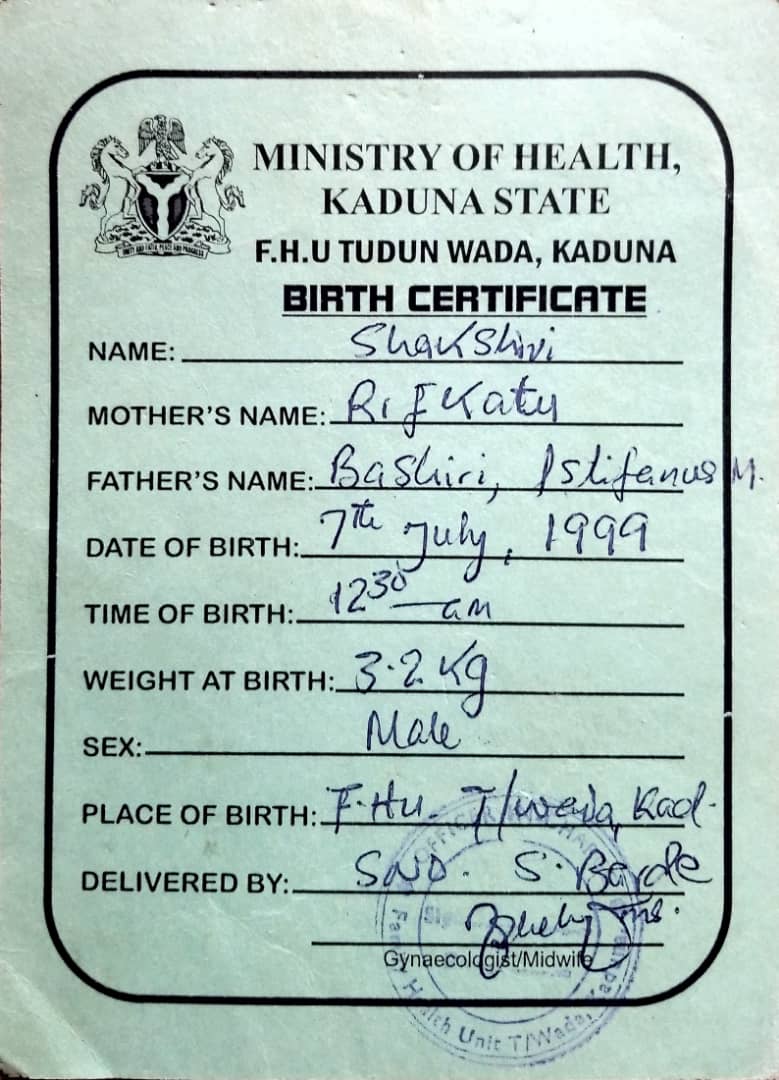 MINISTRY OF HEALTH,
KADUNA STATE
F.H.U TUDUN WADA, KADUNA
BIRTH CERTIFICATE
NAME: Shakshivi
MOTHER'S NAME: Rifkatu
FATHER'S NAME: Bashiri, Istifanus M.
DATE OF BIRTH: 7th July, 1999
TIME OF BIRTH: 12 30 am
WEIGHT AT BIRTH: 3.2 Kg
SEX: Male
PLACE OF BIRTH: F.HU. T/wada, Kad.
DELIVERED BY: S. Barde
Gynaecologist/Midwife
Health Unit T/Wada,